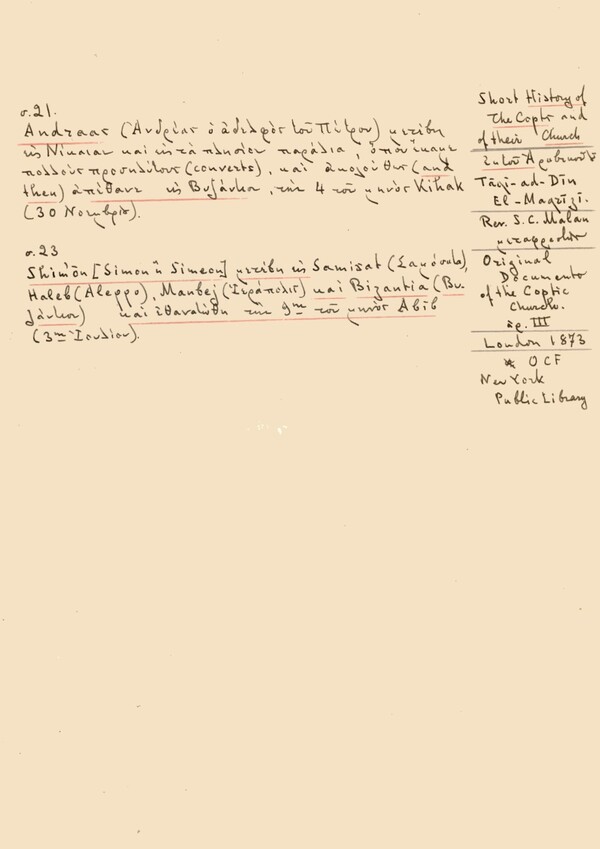 σ.21.
Andraas (Ἀνδρέας ὁ ἀδελφὸς τοῦ Πέτρου) μετέβη
εἰς Νίκαιαν καὶ εἰς τὰ πλησίον παράλια, ὁποῦ ἔκαμε
πολλοὺς προσηλύτους (converts), καὶ ἀκολούθως (and
then) ἀπέθανε εἰς Βυζάντιον, τὴν 4 τοῦ μηνὸς Kihak
(30 Νοεμβρίου).
σ.23
Shim'ōn [Simon ἢ Simeon] μετέβη εἰς Samisat (Σαμόσατα),
Haleb (Aleppo), Manbej (Ἱεράπολις) καὶ Bizantia (Βυ-
ζάντιον) καὶ ἐθανατώθη τὴν 9ην τοῦ μηνὸς Abib
(3ην Ἰουλίου).
Short History of
the Copts and
of their Church
ἐκ τοῦ Ἀραβικοῦ
Tāqi-ad-Dīn
El-Maqrīzī.
Rev. S.C. Malan
μεταφραστὴς
Original
Documents
of the Coptic
Church.
ἀρ. III
London 1873
* OCF
New York
Public Library